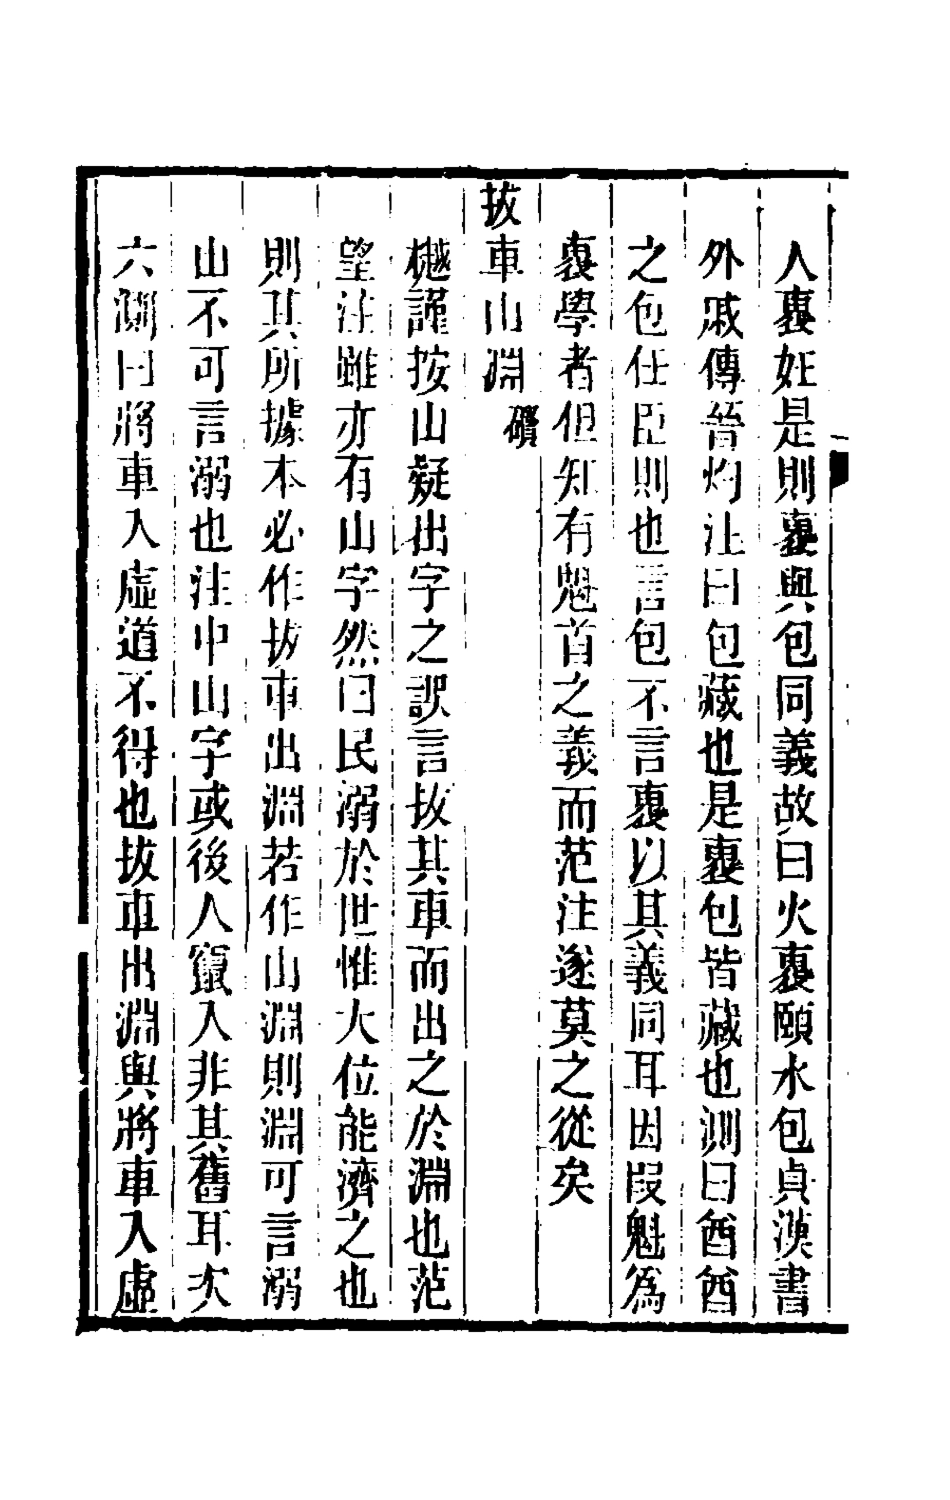 人裹妊是則裹與包同義故曰火裹頤水包貞漢書
外戚傳晉灼注曰包藏也是裹包皆藏也測曰酋酋
之包任臣則也言包不言裹以其義同耳因叚魁為
裹學者但知有魁首之義而范注遂莫之從矣
拔車山淵礥
樾謹按山疑出字之誤言拔其車而出之於淵也范
望注雖亦有山字然曰民溺於世惟大位能濟之也
則其所據本必作拔車出淵若作山淵則淵可言溺
山不可言溺也注中山字或後人竄入非其舊耳次
六測曰將車入虛道不得也拔車出淵與將車入虛